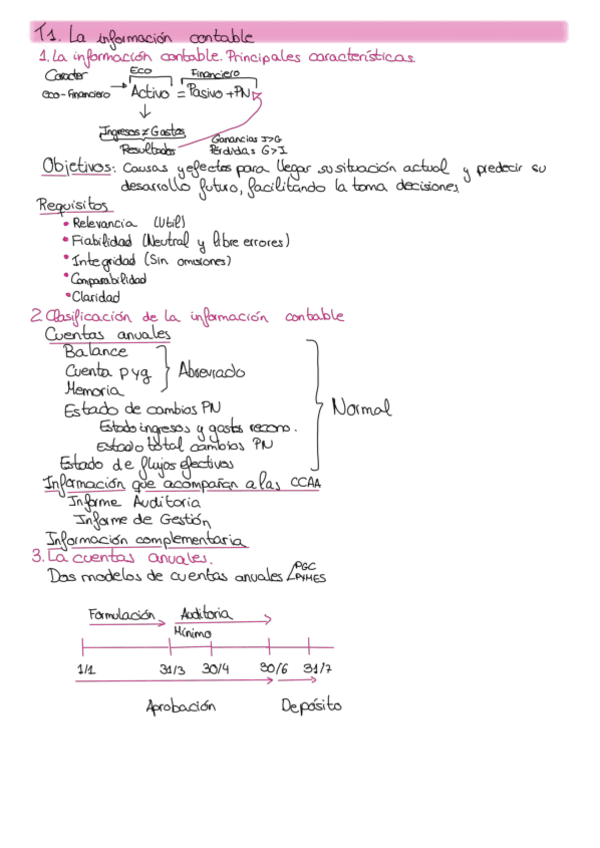 T1. La información contable
1. La información contable. Principales características.
Caracter Eco Financiero
eco-Financiero → Activo = Pasivo + PN
Ingresos ≠ Gastos
Resultados
Ganancias I>G
Pérdidas G>I
Objetivos: Causas y efectos para llegar su situación actual y predecir su
desarrollo futuro, facilitando la toma decisiones.
Requisitos
• Relevancia (Util)
• Fiabilidad (Neutral y libre errores)
• Integridad (Sin omisiones)
• Comparabilidad
• Claridad
2. Clasificación de la información contable
Cuentas anuales
Balance
Cuenta pyg Abreviado
Memoria
Estado de cambios PN Normal
Estado ingresos y gastos recono.
Estado total cambios PN
Estado de flujos efectivos
Información que acompañan a las CCAA
Informe Auditoria
Informe de Gestión
Información complementaria
3. La cuentas anuales.
Dos modelos de cuentas anuales PGC
PYMES
Formulación Auditoria
Mínimo
1/1 31/3 30/4 30/6 31/7
Aprobación Depósito